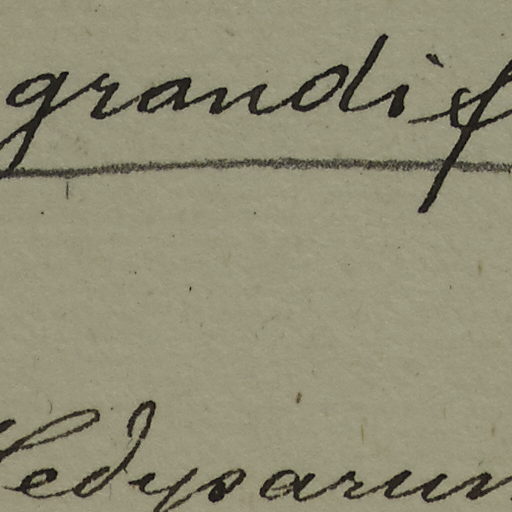 grandif
Hedysarum